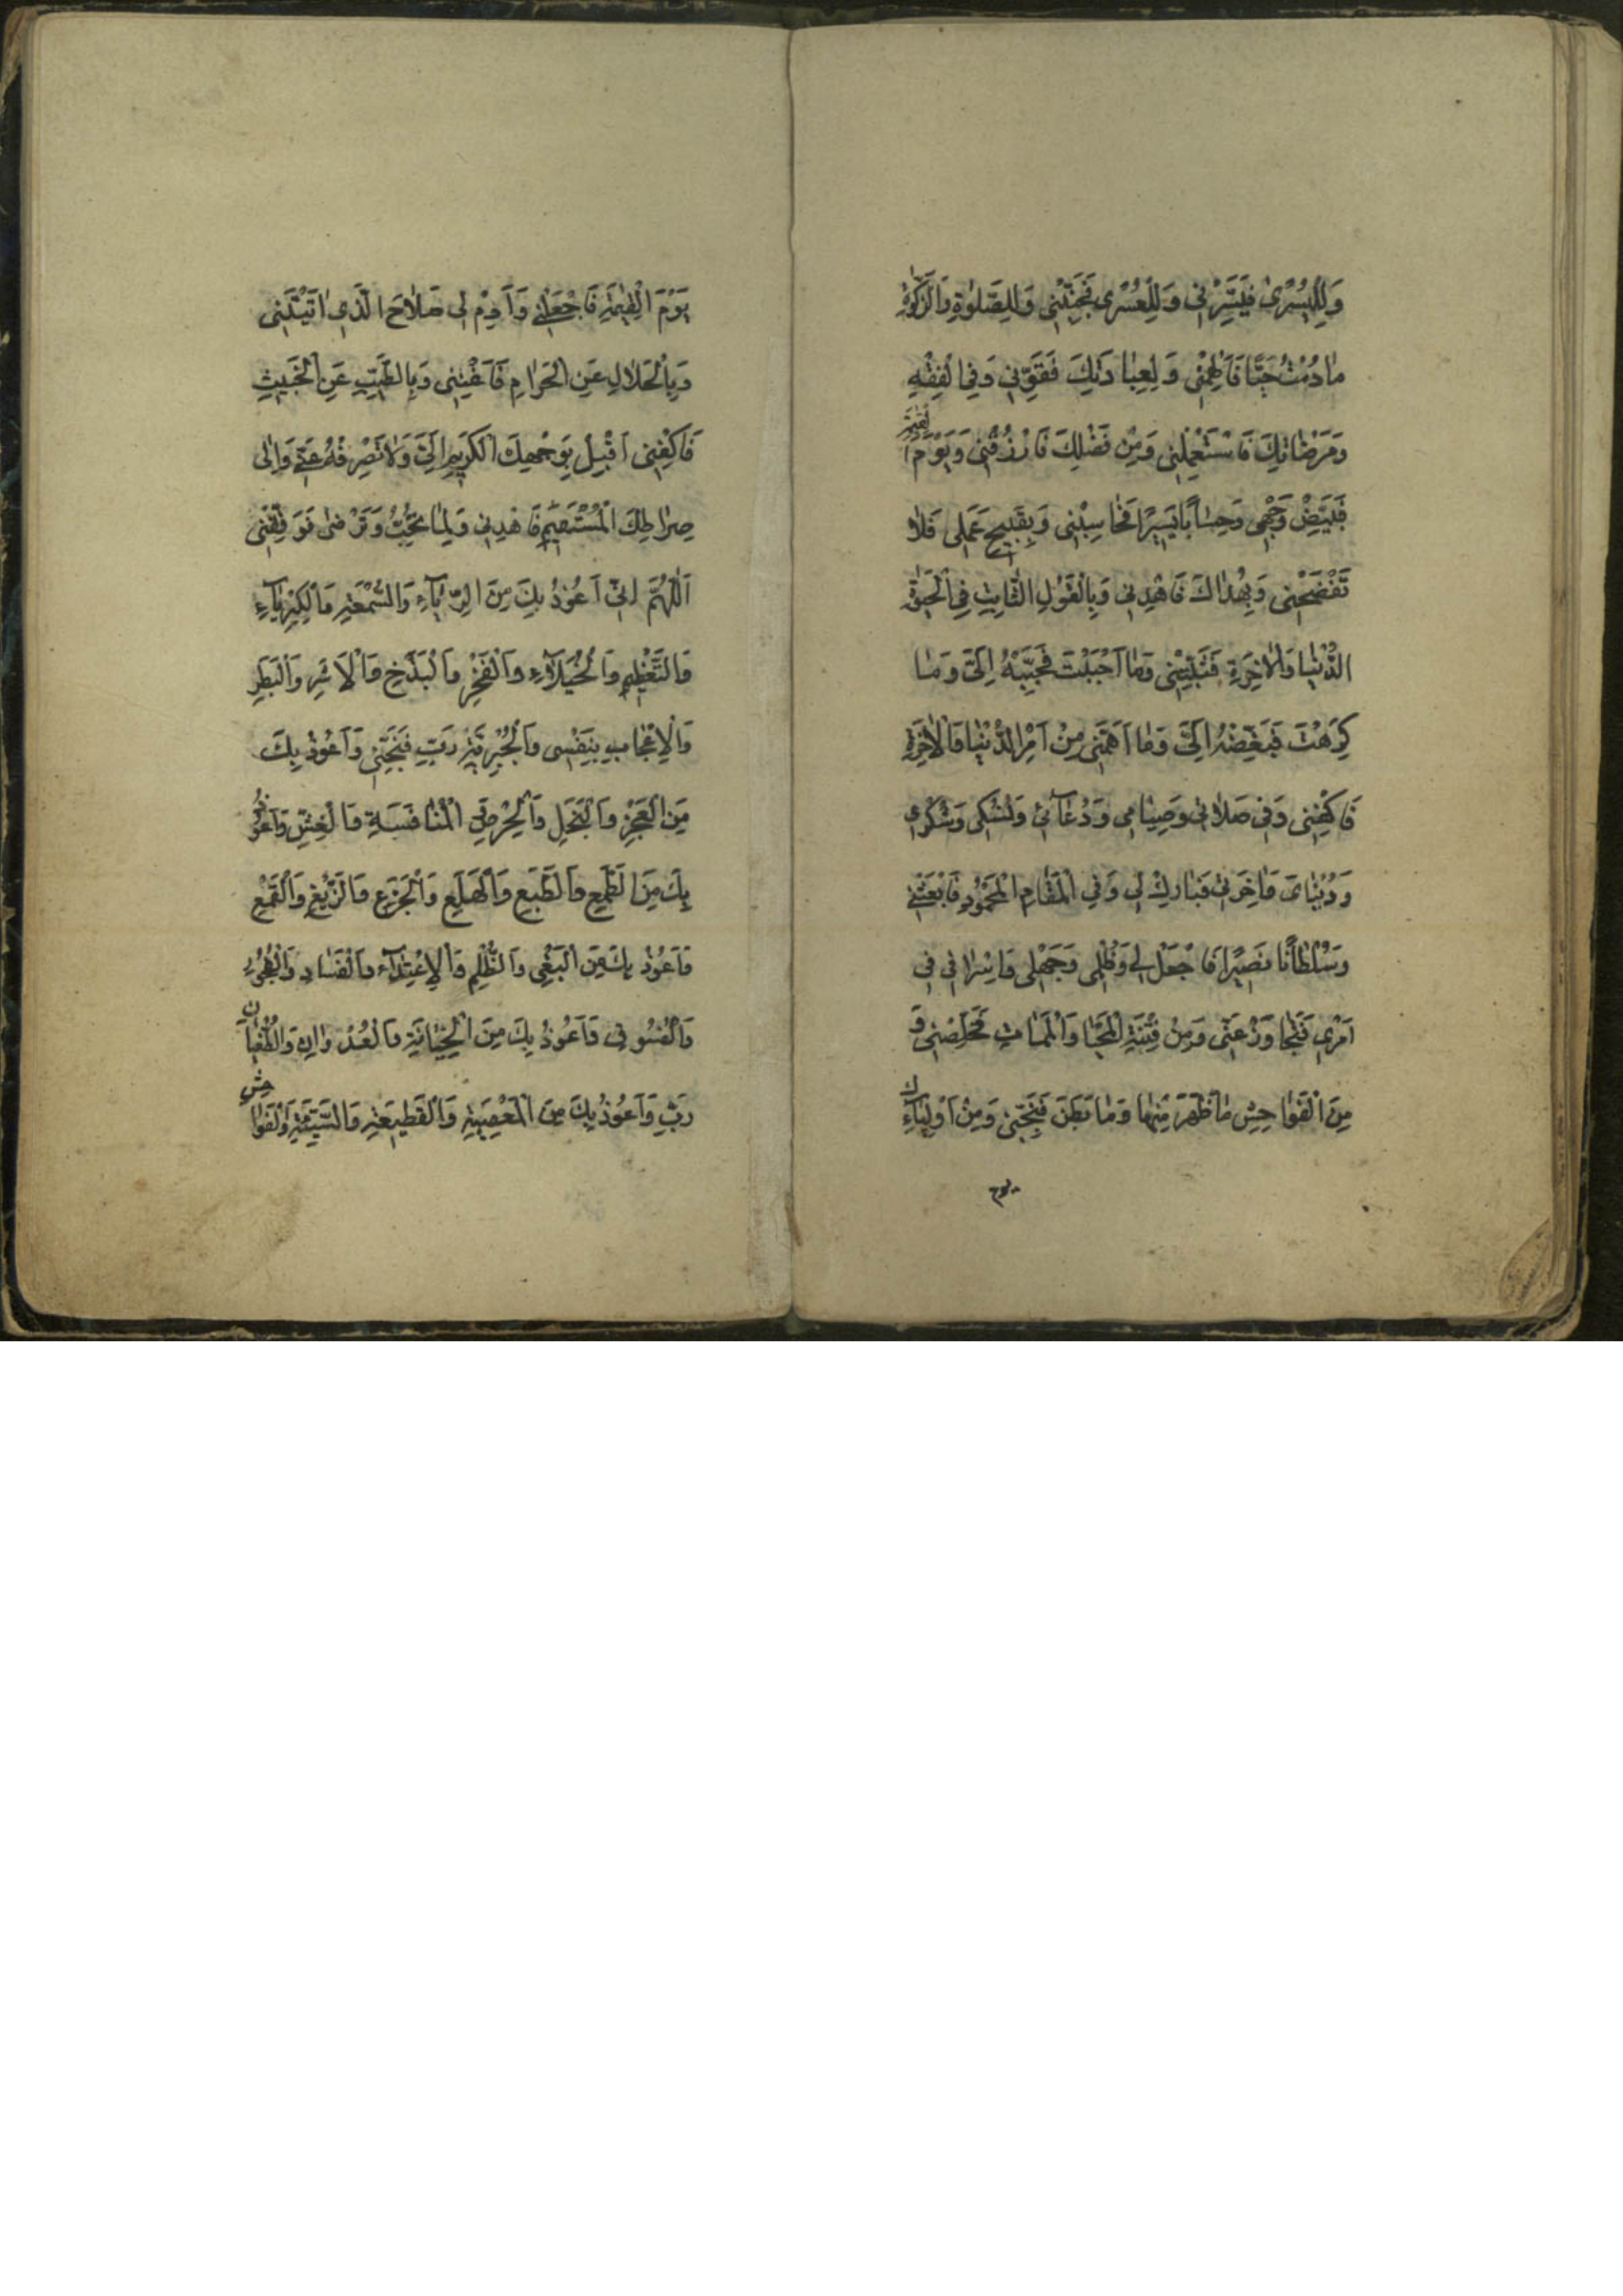 وَلِلْيُسْرىٰ فَيَسِّرْنى وَلِلْعُسْرى فَجَنِّبْنى وَلِلصَّلوٰةِ وَالزَّكوٰةِ
مٰادُمْتُ حَيًّا فَاَلْهِمْنى وَلِعِبٰادَتِكَ فَقَوِّنى وَفِى الْفِقْهِ
وَمَرْضٰاتِكَ فَاسْتَعْمِلْنى وَمِنْ فَضْلِكَ فَارْزُقْنى وَيَوْمَ الْقِيٰمَةِ
فَبَيِّضْ وَجْهى وَحِسٰاباً يَسيرًا فَحٰاسِبْنى وَبِقَبيحِ عَمَلى فَلاٰ
تَفْضَحْنى وَبِهُدٰاكَ فَاهْدِنى وَبِالْقَوْلِ الثّٰابِتِ فِى الْحَيٰوةِ
الدُّنْيٰا وَالاٰخِرَةِ فَثَبِّتْنى وَمٰا اَحْبَبْتَ فَحَبِّبْهُ اِلَىَّ وَمٰا
كَرِهْتَ فَبَغِّضْهُ اِلَىَّ وَمٰا اَهَمَّنى مِنْ اَمْرِ الدُّنْيٰا وَالْاٰخِرَةِ
فَاكْفِنى وَفى صَلاٰتى وَصِيٰامى وَدُعٰآئى وَنُسُكى وَشُكْرى
وَدُنْيٰاىَ وَاٰخِرَتى فَبٰارِكْ لى وَفِى الْمَقٰامِ الْمَحْمُودِ فَابْعَثْنى
وَسُلْطٰانًا نَصيرًا فَاجْعَلْ لى وَظُلْمى وَجَهْلى وَاِسْرٰافى فى
اَمْرى فَتَجٰاوَزْ عَنّى وَمِنْ فِتْنَةِ الْمَحْيٰا وَالْمَمٰاتِ فَخَلِّصْنى وَ
مِنَ الْفَوٰاحِشِ مٰا ظَهَرَ مِنْهٰا وَمٰا بَطَنَ فَنَجِّنى وَمِنْ اَوْلِيٰآءِكَ
يوم
يَوْمَ الْقِيٰمَةِ فَاجْعَلْنى وَاَدِمْ لى صَلاٰحَ الَّذى اٰتَيْتَنى
وَبِالْحَلاٰلِ عَنِ الْحَرٰامِ فَاَغْنِنى وَبِالطَّيِّبِ عَنِ الْخَبيثِ
فَاكْفِنى اَقْبِلْ بِوَجْهِكَ الْكَريمِ اِلَىَّ وَلاٰ تَصْرِفْهُ عَنّى وَاِلٰى
صِرٰاطِكَ الْمُسْتَقيمِ فَاهْدِنى وَلِمٰا تُحِبُّ وَتَرْضىٰ فَوَفِّقْنى
اَللّٰهُمَّ اِنّى اَعُوذُ بِكَ مِنَ الرِّيٰآءِ وَالسُّمْعَةِ وَالْكِبْرِيٰآءِ
وَالتَّعْظيمِ وَالْخُيَلاٰءِ وَالْفَخْرِ وَالْبَذَخِ وَالْاَشَرِ وَالْبَطَرِ
وَالْاِعْجٰابِ بِنَفْسى وَالْجَبْرِيَّةِ رَبِّ فَنَجِّنى وَاَعُوذُ بِكَ
مِنَ الْعَجْزِ وَالْبُخْلِ وَالْحِرْصِ وَالْمُنٰافَسَةِ وَالْغِشِّ وَاَعُوذُ
بِكَ مِنَ الطَّمَعِ وَالطَّبَعِ وَالْهَلَعِ وَالْجَزَعِ وَالزَّيْغِ وَالْقَمْعِ
وَاَعُوذُ بِكَ مِنَ الْبَغْىِ وَالظُّلْمِ وَالْاِعْتِدٰآءِ وَالْفَسٰادِ وَالْفُجُورِ
وَالْفُسُوقِ وَاَعُوذُ بِكَ مِنَ الْخِيٰانَةِ وَالْعُدْوٰانِ وَالطُّغْيٰانِ
رَبِّ وَاَعُوذُ بِكَ مِنَ الْمَعْصِيَةِ وَالْقَطيعَةِ وَالسَّيِّئَةِ وَالْفَوٰاحِشِ